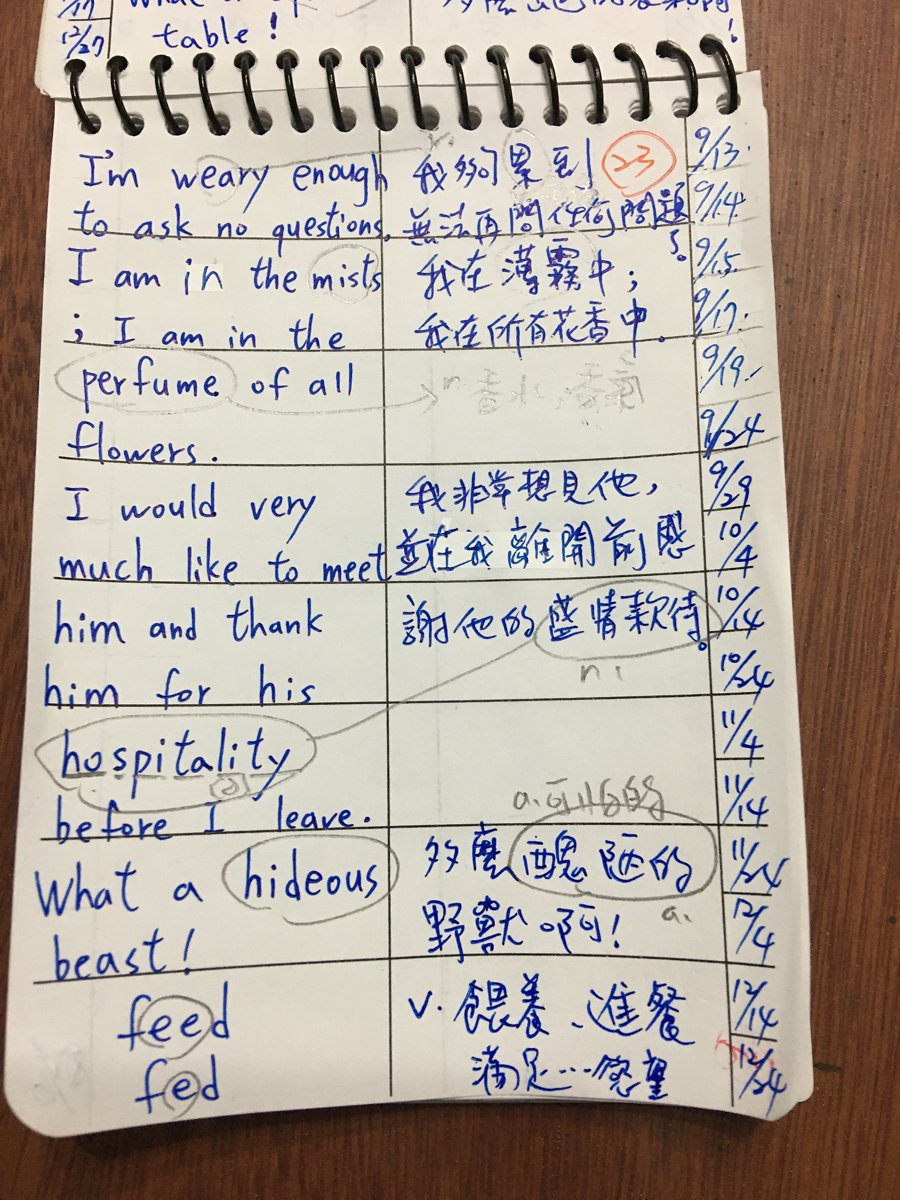 table!
12/27
I'm weary enough 我夠累到 23 9/13.
to ask no questions. 無法再問任何問題。 9/14.
I am in the mists 我在薄霧中； 9/15.
; I am in the 我在所有花香中. 9/17.
perfume of all n.香水,香 9/19.
flowers. 9/24
I would very 我非常想見他， 9/29
much like to meet 並在我離開前感 10/4
him and thank 謝他的盛情款待。 10/14
him for his n. 10/24
hospitality 11/4
before I leave. a.可怕的 11/14
What a hideous 多麼醜陋的 a. 11/24
beast! 野獸啊! 12/4
feed v. 餵養、進餐 12/14
fed 滿足…慾望 12/24